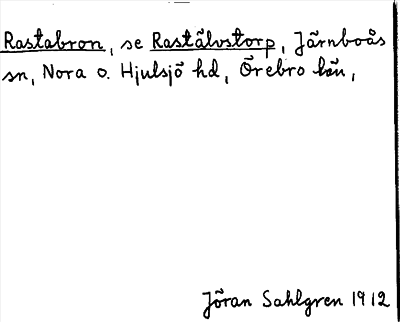 Rastabron, se Rastälvstorp, Järnboås
sn, Nora o. Hjulsjö hd, Örebro län,
Jöran Sahlgren 1912